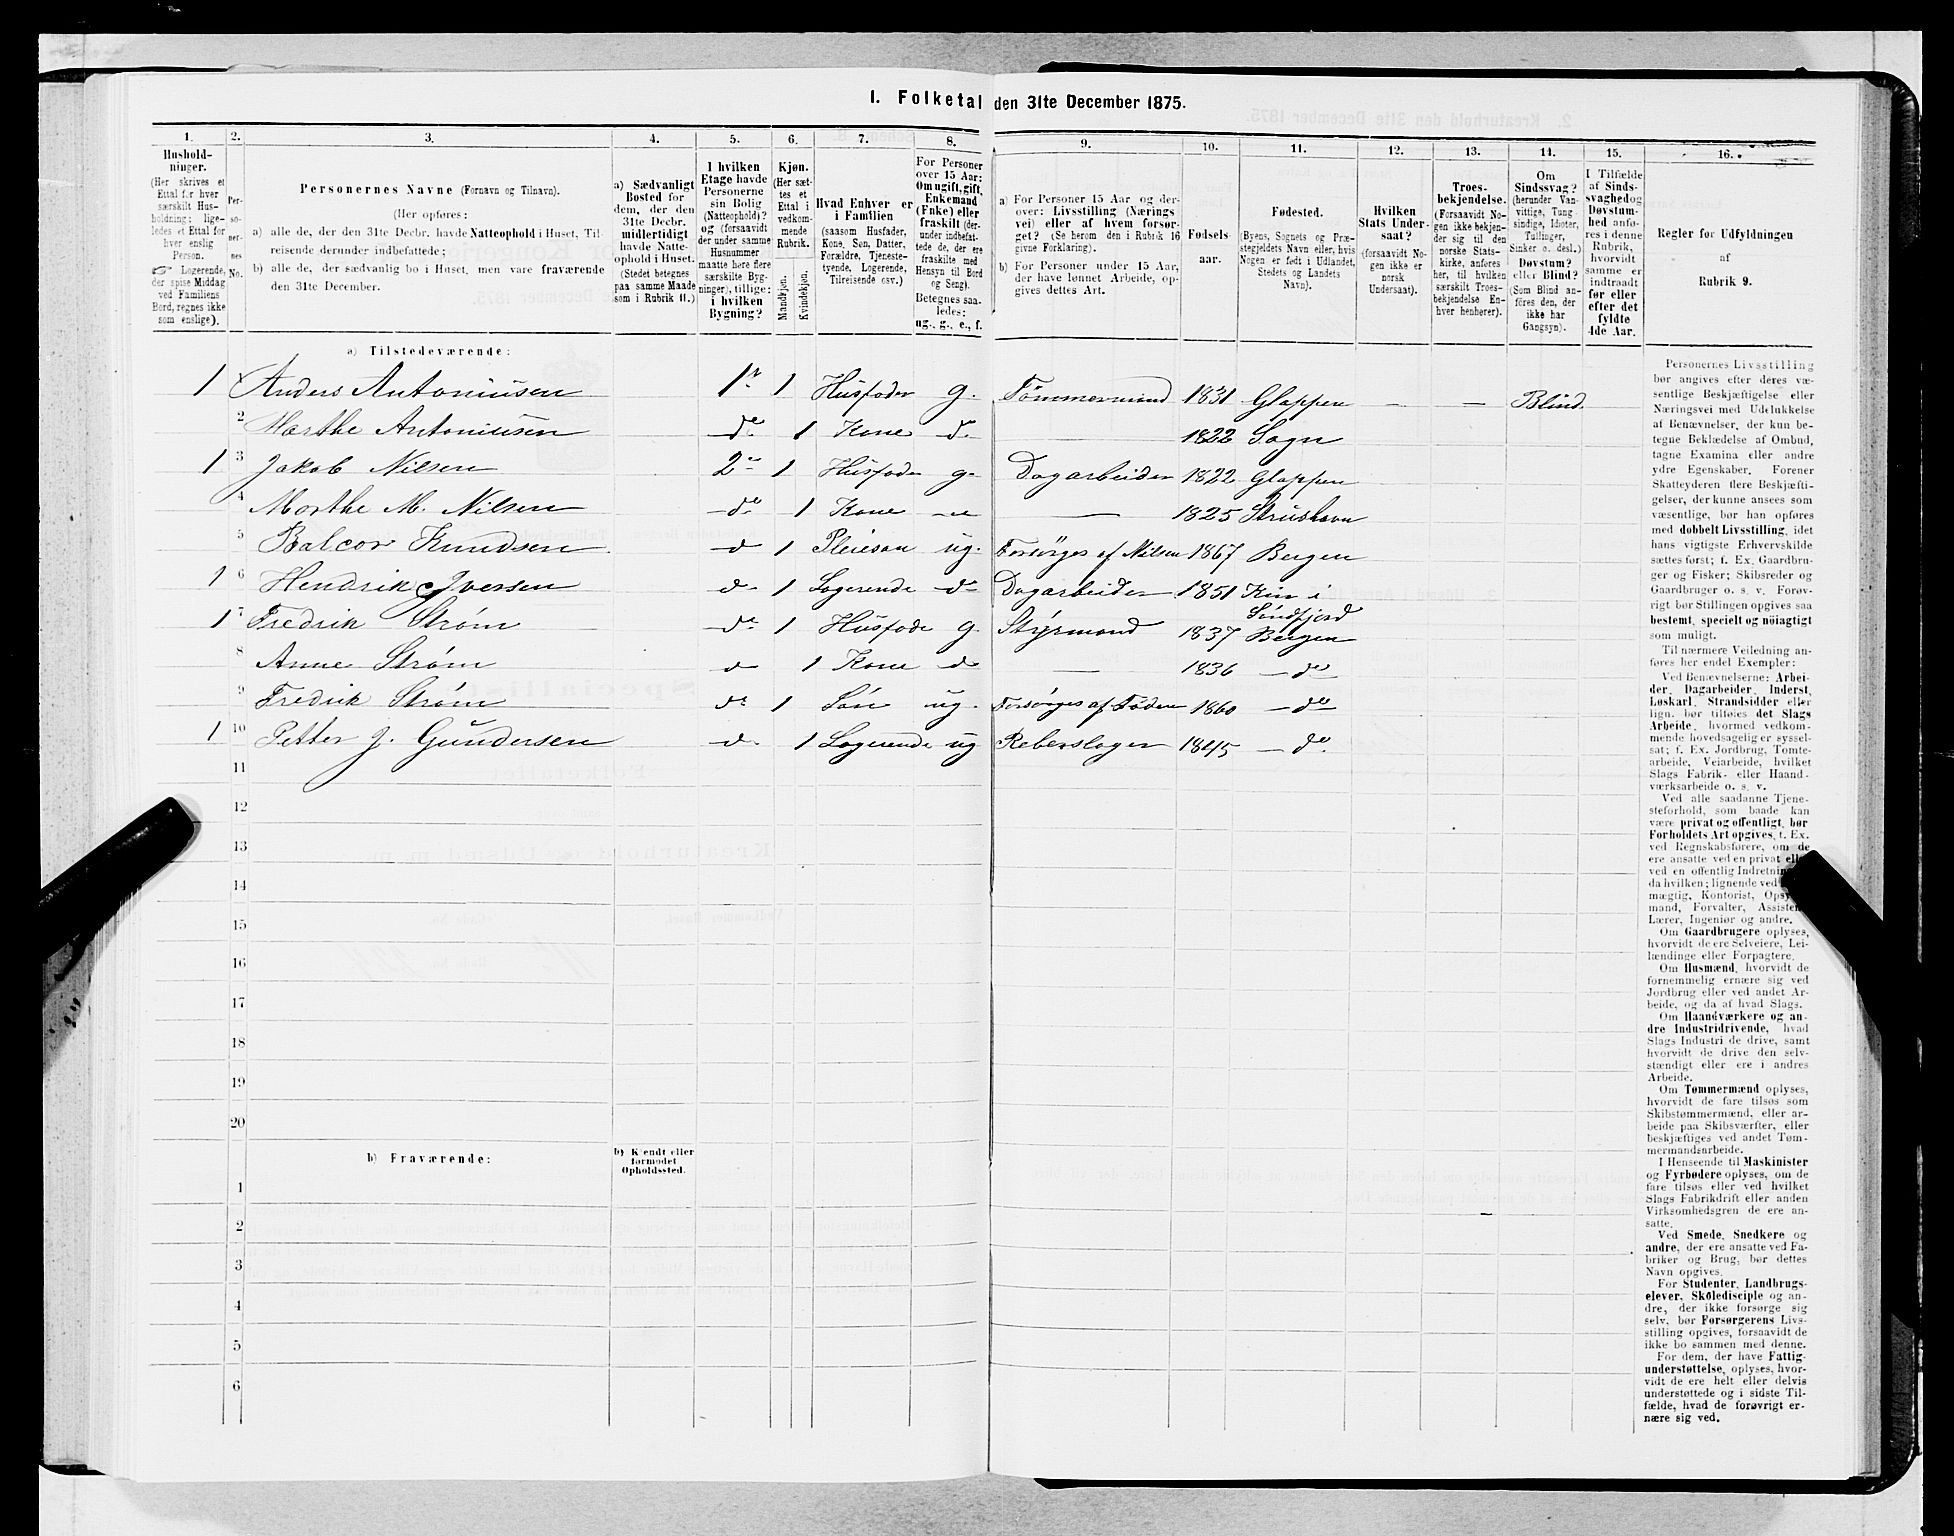 I. Folketal den 31te December 1875.
1. 2. 3. 4. 5. 6. 7. 8. 9. 10. 11. 12. 13. 14. 15. 16.
Hushold-
ninger.
(Her skrives et
Ettal for hver
særskilt Hus-
holdning; lige-
ledes et Ettal for
hver enslig
Person.
☞ Logerende,
der spise Middag
ved Familiens
Bord, regnes ikke
som enslige).
Per-
so-
ner-
nes
No.
Personernes Navne (Fornavn og Tilnavn).
(Her opføres:
a) alle de, der den 31te Decbr. havde Natteophold i Huset, Til-
reisende derunder indbefattede;
b) alle de, der sædvanlig bo i Huset, men vare fraværende
den 31te December.
a) Sædvanligt
Bosted for
dem, der den
31te Decbr.
midlertidigt
havde Natte-
ophold i Huset.
(Stedet betegnes
paa samme Maade
som i Rubrik 11.)
I hvilken
Etage havde
Personerne
sin Bolig
(Natteophold)?
og (forsaavidt
der under samme
Husnummer
maatte høre flere
særskilte Byg-
ninger), tillige:
i hvilken
Bygning?
Kjøn.
(Her sæt-
tes et
Ettal i
vedkom-
mende
Rubrik.
Mandkjøn.
Kvindekjøn.
Hvad Enhver er
i Familien
(saasom Husfader,
Kone, Søn, Datter,
Forældre, Tjeneste-
tyende, Logerende,
Tilreisende osv.)
For Personer
over 15 Aar:
Om ugift, gift,
Enkemand
(Enke) eller
fraskilt (der-
under indbefat-
tede de, der ere
fraskilte med
Hensyn til Bord
og Seng).
Betegnes saa-
ledes:
ug., g., e., f.
a) For Personer 15 Aar og der-
over: Livsstilling (Nærings
vei) eller af hvem forsør-
get? (Se herom den i Rubrik 16
givne Forklaring).
b) For Personer under 15 Aar,
der have lønnet Arbeide, op-
gives dettes Art.
Fødsels-
aar.
Fødested.
(Byens, Sognets og Præ-
stegjeldets Navn eller, hvis
Nogen er født i Udlandet,
Stedets og Landets
Navn).
Hvilken
Stats Under-
saat?
(forsaavidt No-
gen ikke er
norsk
Undersaat).
Troes-
bekjendelse.
(Forsaavidt No-
gen ikke bekjen-
der sig til den
norske Stats-
kirke, anføres
her, til hvilken
særskilt Troes-
bekjendelse En-
hver henhører).
Om
Sindssvag?
(herunder Van-
vittige, Tung-
sindige, Idioter,
Tullinger,
Sinker o. desl.)
Døvstum?
eller Blind?
(Som Blind an-
føres den, der
ikke har
Gangsyn).
I Tilfælde
af Sinds-
svaghed og
Døvstum-
hed anfø-
res i denne
Rubrik,
hvorvidt
samme er
indtraadt
før eller
efter det
fyldte
4de Aar.
Regler for Udfyldningen
af
Rubrik 9.
a) Tilstedeværende:
1 1 Anders Antoniusen 1ste 1 Husfader g. Tömmermand 1831 Gloppen — — Blind.
2 Marthe Antoniusen do 1 Kone do — 1822 Sogn
1 3 Jakob Nilsen 2den 1 Husfade g. Dagarbeider 1822 Gloppen
4 Marthe M. Nilsen do 1 Kone — 1825 Strushavn
5 Balcor Knudsen d 1 Pleiesøn ug. Forsörges af Nilsen 1867 Bergen
1 6 Hendrik Iversen d 1 Logerende do Dagarbeider 1851 Kin i
Söndfjord
1 7 Fredrik Strøm do 1 Husfade g. Styrmand 1837 Bergen
8 Anne Strøm d 1 Kone d — 1836 — do
9 Fredrik Strøm do 1 Sön ug. Forsörges af Fader 1860 — do
1 10 Petter J. Gundersen d. 1 Logerende ug Reberslager 1845 — do
11
12
13
14
15
16
17
18
19
20
b) Fraværende:
b) Kjendt eller
formodet
Opholdssted.
1
2
3
4
5
6
Personernes Livsstilling
bør angives efter deres væ-
sentlige Beskjæftigelse eller
Næringsvei med Udelukkelse
af Benævnelser, der kun be-
tegne Beklædelse af Ombud,
tagne Examina eller andre
ydre Egenskaber. Forener
Skatteyderen flere Beskjæfti-
gelser, der kunne ansees som
væsentlige, bør han opføres
med dobbelt Livsstilling, idet
hans vigtigste Erhvervskilde
sættes først; f. Ex. Gaardbru-
ger og Fisker; Skibsreder og
Gaardbruger o. s. v. Forøv-
rigt bør Stillingen opgives saa
bestemt, specielt og nöiagtigt
som muligt.
Til nærmere Veiledning an-
føres her endel Exempler:
Ved Benævnelserne: Arbei-
der, Dagarbeider, Inderst,
Løskarl, Strandsidder eller
lign. bør tilføies det Slags
Arbeide, hvormed vedkom-
mende hovedsagelig er syssel-
sat; f. Ex. Jordbrug, Tomte-
arbeide, Veiarbeide, hvilket
Slags Fabrik- eller Haand-
værksarbeide o. s. v.
Ved alle saadanne Tjene-
steforhold, som baade kan
være privat og offentligt, bør
Forholdets Art opgives, t. Ex.
ved Regnskabsførere, om de
ere ansatte ved en privat eller
ved en offentlig Indretning
da hvilken; lignende ved
mægtig, Kontorist, Opsy
mand, Forvalter, Assisten
Lærer, Ingeniør og andre.
Om Gaardbrugere oplyses,
hvorvidt de ere Selveiere, Lei-
lændinge eller Forpagtere.
Om Husmænd, hvorvidt de
fornemmelig ernære sig ved
Jordbrug eller ved andet Ar-
beide, og da af hvad Slags.
Om Haandværkere og an-
dre Industridrivende, hvad
Slags Industri de drive, samt
hvorvidt de drive den selv-
stændigt eller ere i andres
Arbeide.
Om Tømmermænd oplyses,
hvorvidt de fare tilsøs som
Skibstømmermænd, eller ar-
beide paa Skibsværfter, eller
beskjæftiges ved andet Tøm-
mermandsarbeide.
I Henseende til Maskinister
og Fyrbødere oplyses, om de
fare tilsøs eller ved hvilket
Slags Fabrikdrift eller anden
Virksomhedsgren de ere an-
satte.
Ved Smede, Snedkere og
andre, der ere ansatte ved Fa-
briker og Brug, bør dettes
Navn opgives.
For Studenter, Landbrugs-
elever, Skoledisciple og an-
dre, der ikke forsørge sig
selv, bør Forsørgerens Livs-
stilling opgives, forsaavidt de
ikke bo sammen med denne.
For dem, der have Fattig-
understøttelse, oplyses, hvor-
vidt de ere helt eller delvis
understøttede og i sidste Til-
fælde, hvad de forøvrigt er-
nære sig ved.